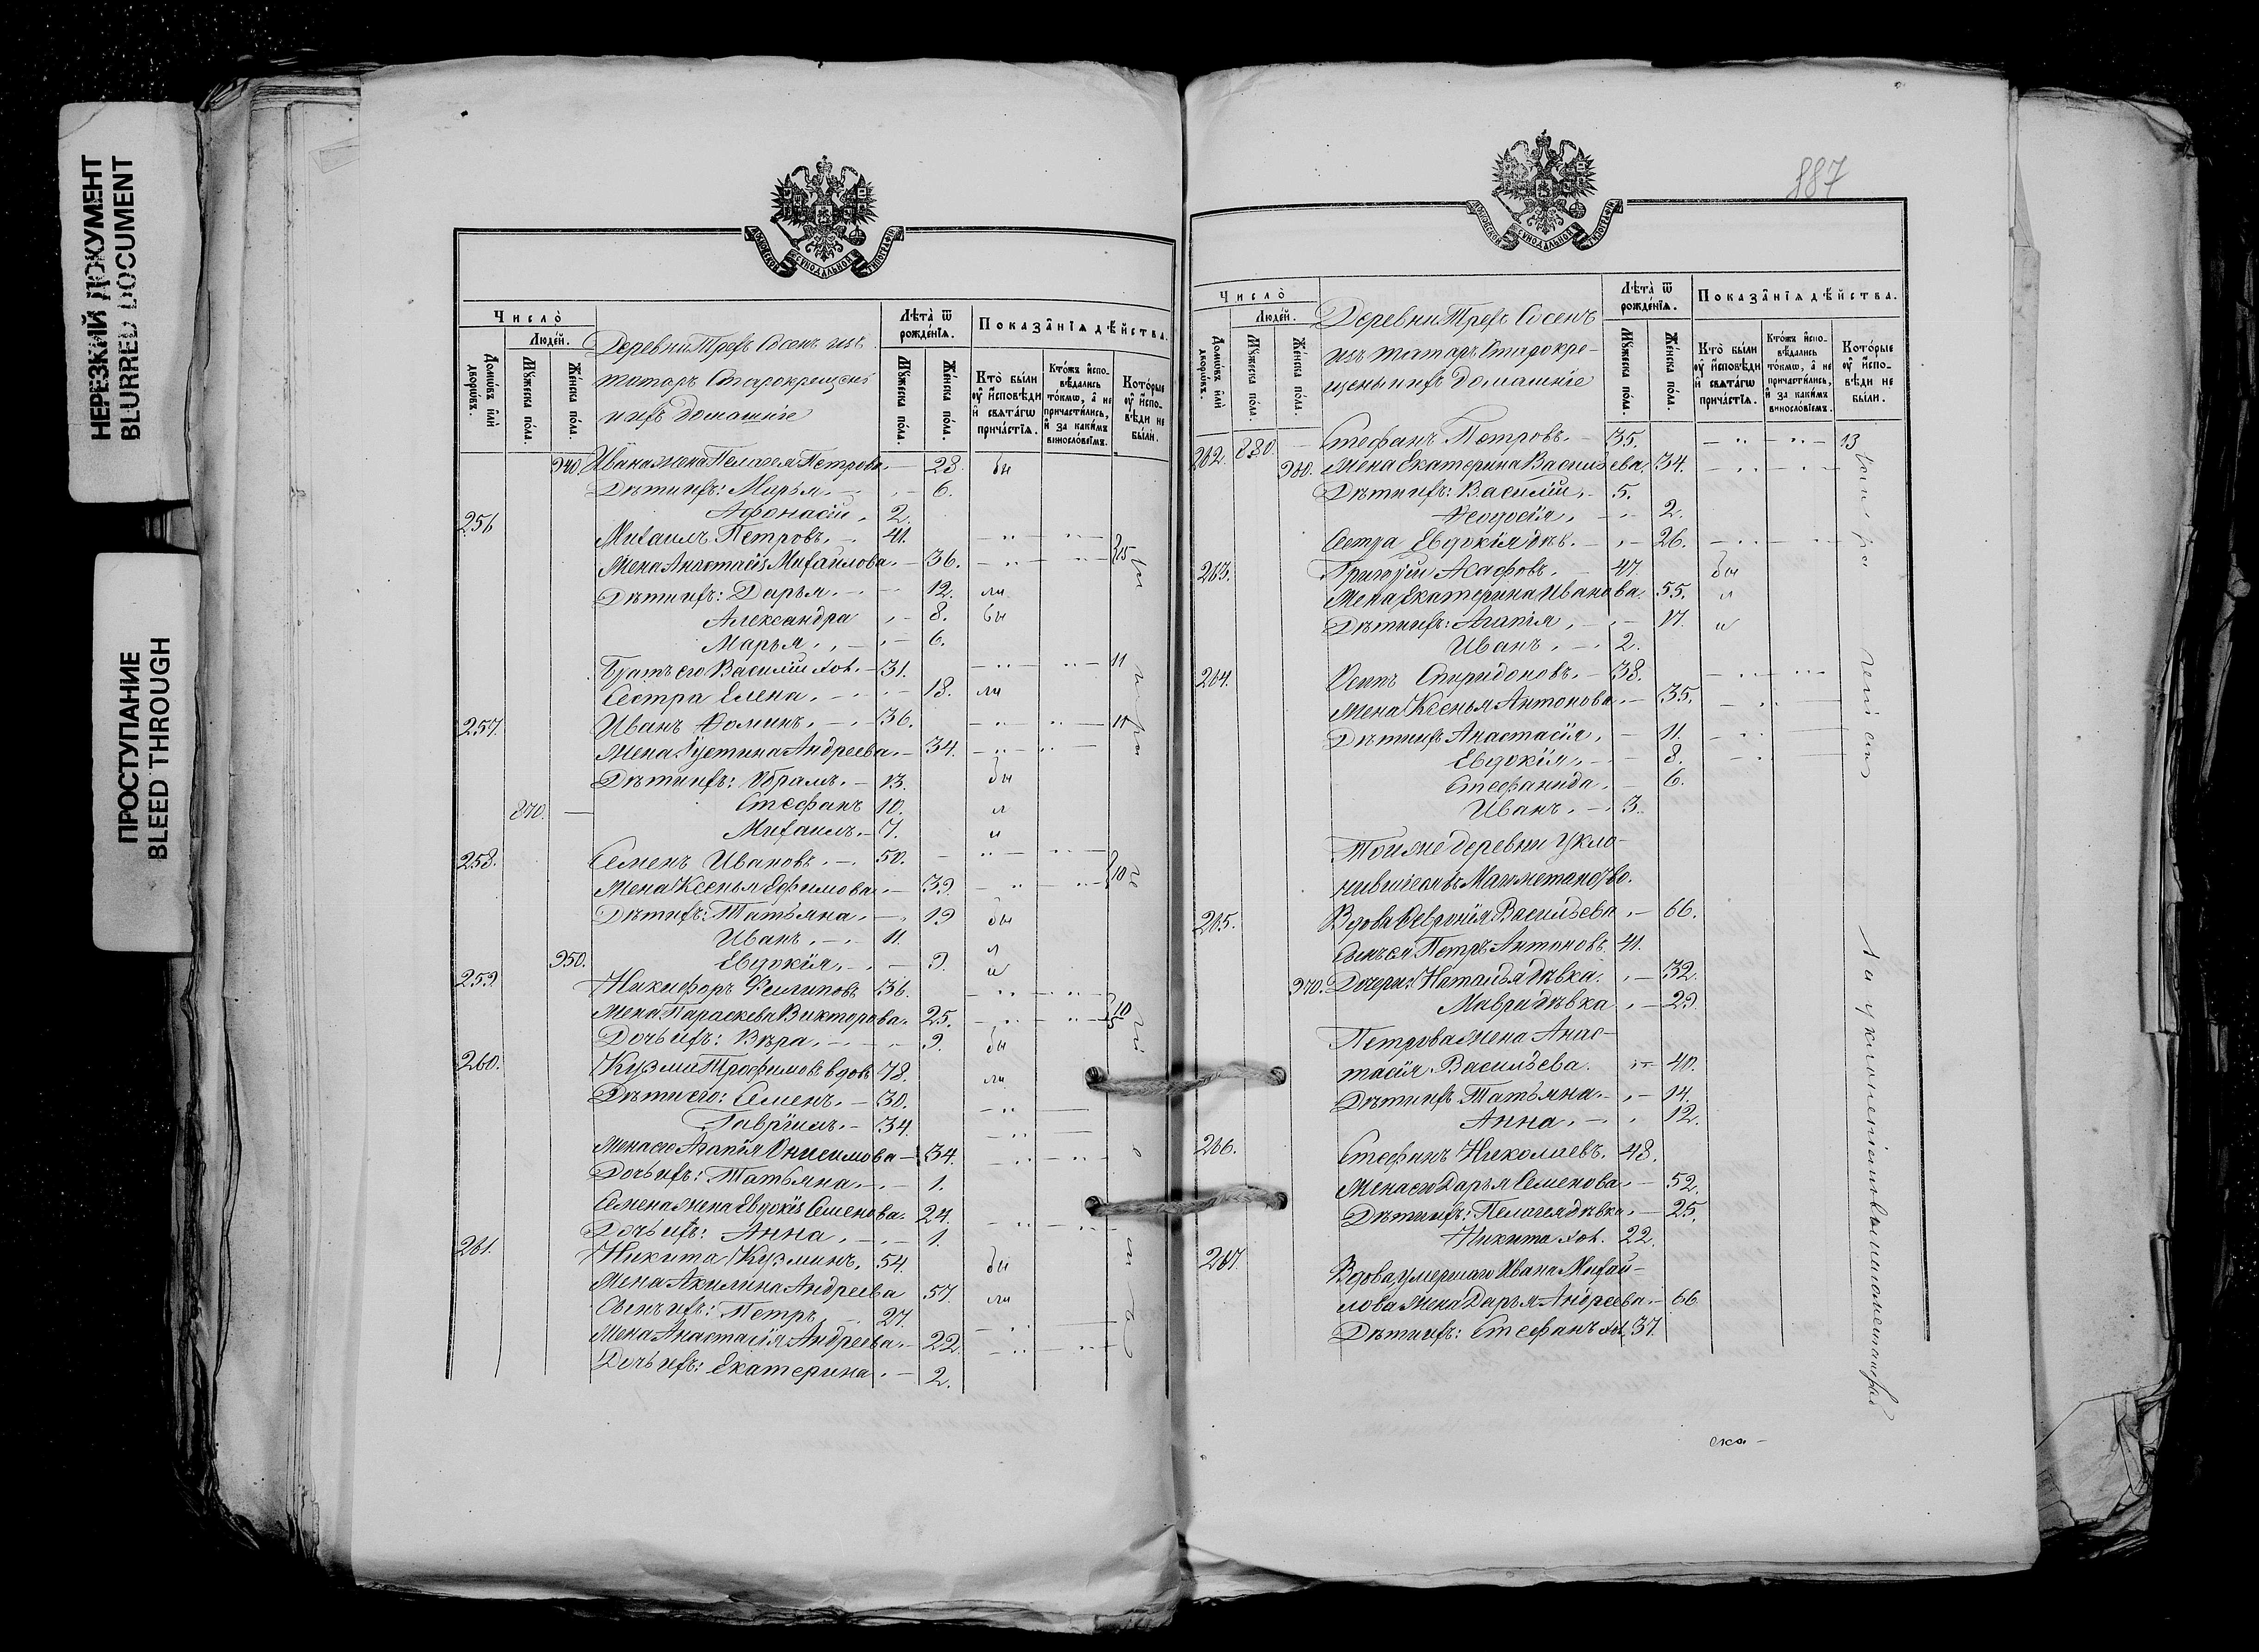 НЕРЕЗКИЙ ДОКУМЕНТ
BLURRED DOCUMENT
ПРОСТУПАНИЕ
BLEED THROUGH
Число̀
Люде́й.
Домѡ́въ и҆лѝ дворѡ́въ.
Мꙋ́жеска по́ла.
Же́нска по́ла.
Деревни Трехъ Сосенъ изъ
татаръ Старокрещены
ихъ домашніе
Лѣта̀ ѿ рожде́нїѧ.
Мꙋ́жеска по́ла.
Же́нска по́ла.
Показа̂нїѧ дѣ́йства.
Кто̀ бы́ли ᲂу҆ и҆сповѣ́ди и҆ свѧта́гѡ прича́стїѧ.
Кто́жъ и҆спо-вѣ́дались то́кмѡ, а҆ не причасти́лись, и҆ за каки́мъ винослоо́вїемъ.
Кото́рые ᲂу҆ и҆спо-вѣ́ди не бы́ли.
940. Ивана жена Пелагея Петрова. — 28. бы
Дѣти ихъ: Марья. — 6.
Афонасій. 2.
256 Михаилъ Петровъ. 41.
Жена Анастасія Михайлова. — 36. 15
Дѣти ихъ: Дарья. — 12. ли
Александра — 8. бы
Марья. — 6.
Братъ его Василій хол. — 31. 11
Сестра Елена. — 18. ли
257. Иванъ Ѳоминъ. — 36. 11
Жена Устина Андреева. — 34.
Дѣти ихъ: Абрамъ. — 13. бы
870. — Стефанъ 10. л
Михаилъ. — 7. и
258. Семенъ Ивановъ. — 50.
Жена Ксенья Ефимова. — 39. 10
Дѣти ихъ: Татьяна. — 19 бы
Иванъ. — 11. л
950. Евдокія. — 9. и
259 Никифоръ Филиповъ 36.
Жена Параскева Викторова. 25. 10
Дочь ихъ: Вѣра. — 9. бы
260. Кузма Трофимовъ вдовъ 78. ли
Дѣти его: Семенъ. — 30.
Гавріилъ. — 34.
Жена его Агапія Онисимова — 34.
Дочь ихъ: Татьяна. — 1.
Семена жена Евдокія Семенова. 24.
Дочь ихъ: Анна. — 1.
261. Никита Кузминъ. 54. бы
Жена Акилина Андреева 57. ли
Сынъ ихъ: Петръ. 27.
Жена Анастасія Андреева. — 22.
Дочь ихъ: Екатерина. — 2.
887
Число̀
Люде́й.
Домѡ́въ и҆лѝ дворѡ́въ.
Мꙋ́жеска по́ла.
Же́нска по́ла.
Деревни Трехъ Сосенъ
изъ татаръ Старокре-
щены ихъ домашніе
Лѣта̀ ѿ рожде́нїѧ.
Мꙋ́жеска по́ла.
Же́нска по́ла.
Показа̂нїѧ дѣ́йства.
Кто̀ бы́ли ᲂу҆ и҆сповѣ́ди и҆ свѧта́гѡ прича́стїѧ.
Кто́жъ и҆спо-вѣ́дались то́кмѡ, а҆ не причасти́лись, и҆ за каки́мъ винослоо́вїемъ.
Кото́рые ᲂу҆ и҆спо-вѣ́ди не бы́ли.
262. 880. — Стефанъ Петровъ. — 35. 13
960. Жена Екатерина Васильева. 34.
Дѣти ихъ: Василій. — 5.
Ѳеодосія. — 2.
Сестра Евдокія дѣв. — 26.
263. Григорій Асафовъ. — 47 бы
Жена Екатерина Иванова. 55. л
Дѣти ихъ: Агапія. — 17. и
Иванъ. — 2.
264. Осипъ Спиридоновъ. — 38.
Жена Ксенья Антонова. — 35.
Дѣти ихъ Анастасія. — 11.
Евдокія. — 8.
Стефанида. — 6.
Иванъ. — 3.
Той же деревни укло-
нившіеся въ Махметанство.
265. Вдова Февронія Васильева. — 66.
Сынъ ея Петръ Антоновъ 41.
970. Дочери: Наталья дѣвка. — 32.
Мавра дѣвка. — 29.
Петрова жена Анас-
тасія Васильева. — 40.
Дѣти ихъ Татьяна. — 14.
Анна. — 12.
266. Стефанъ Николаевъ. 48.
Жена его Дарья Семенова. — 52.
Дѣти ихъ: Пелагея дѣвка. — 25.
Никита хол. 22.
267. Вдова умершаго Ивана Михай-
лова жена Дарья Андреева. — 66.
Дѣти ихъ: Стефанъ хол. 37.
За уклоненіемъ въ магометанство
ска-